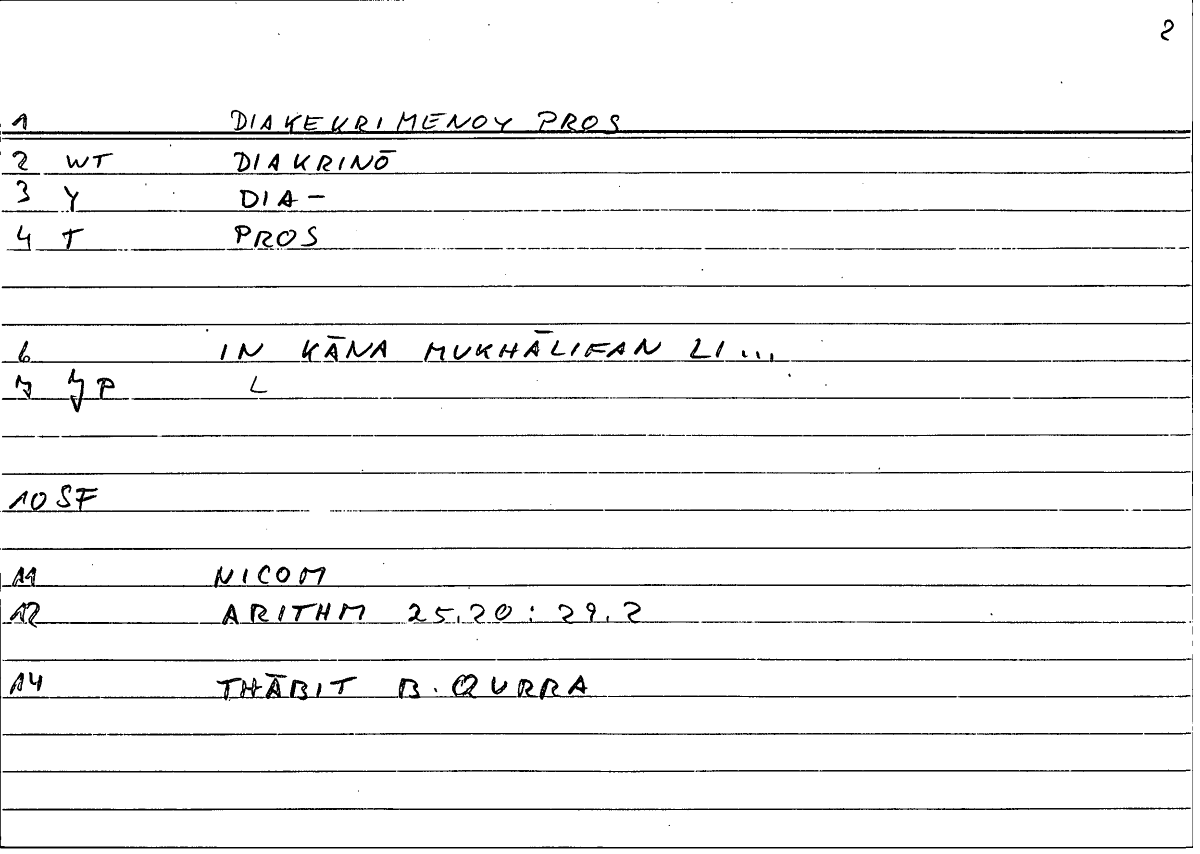 2
1 DIAKEKRIMENOY PROS
2 WT DIAKRINŌ
3 Y DIA-
4 T PROS
6 IN KĀNA MUKHĀLIFAN LI...
7 P L
10 SF
11 NICOM
12 ARITHM 25.20 : 29.2
14 THĀBIT B. QURRA